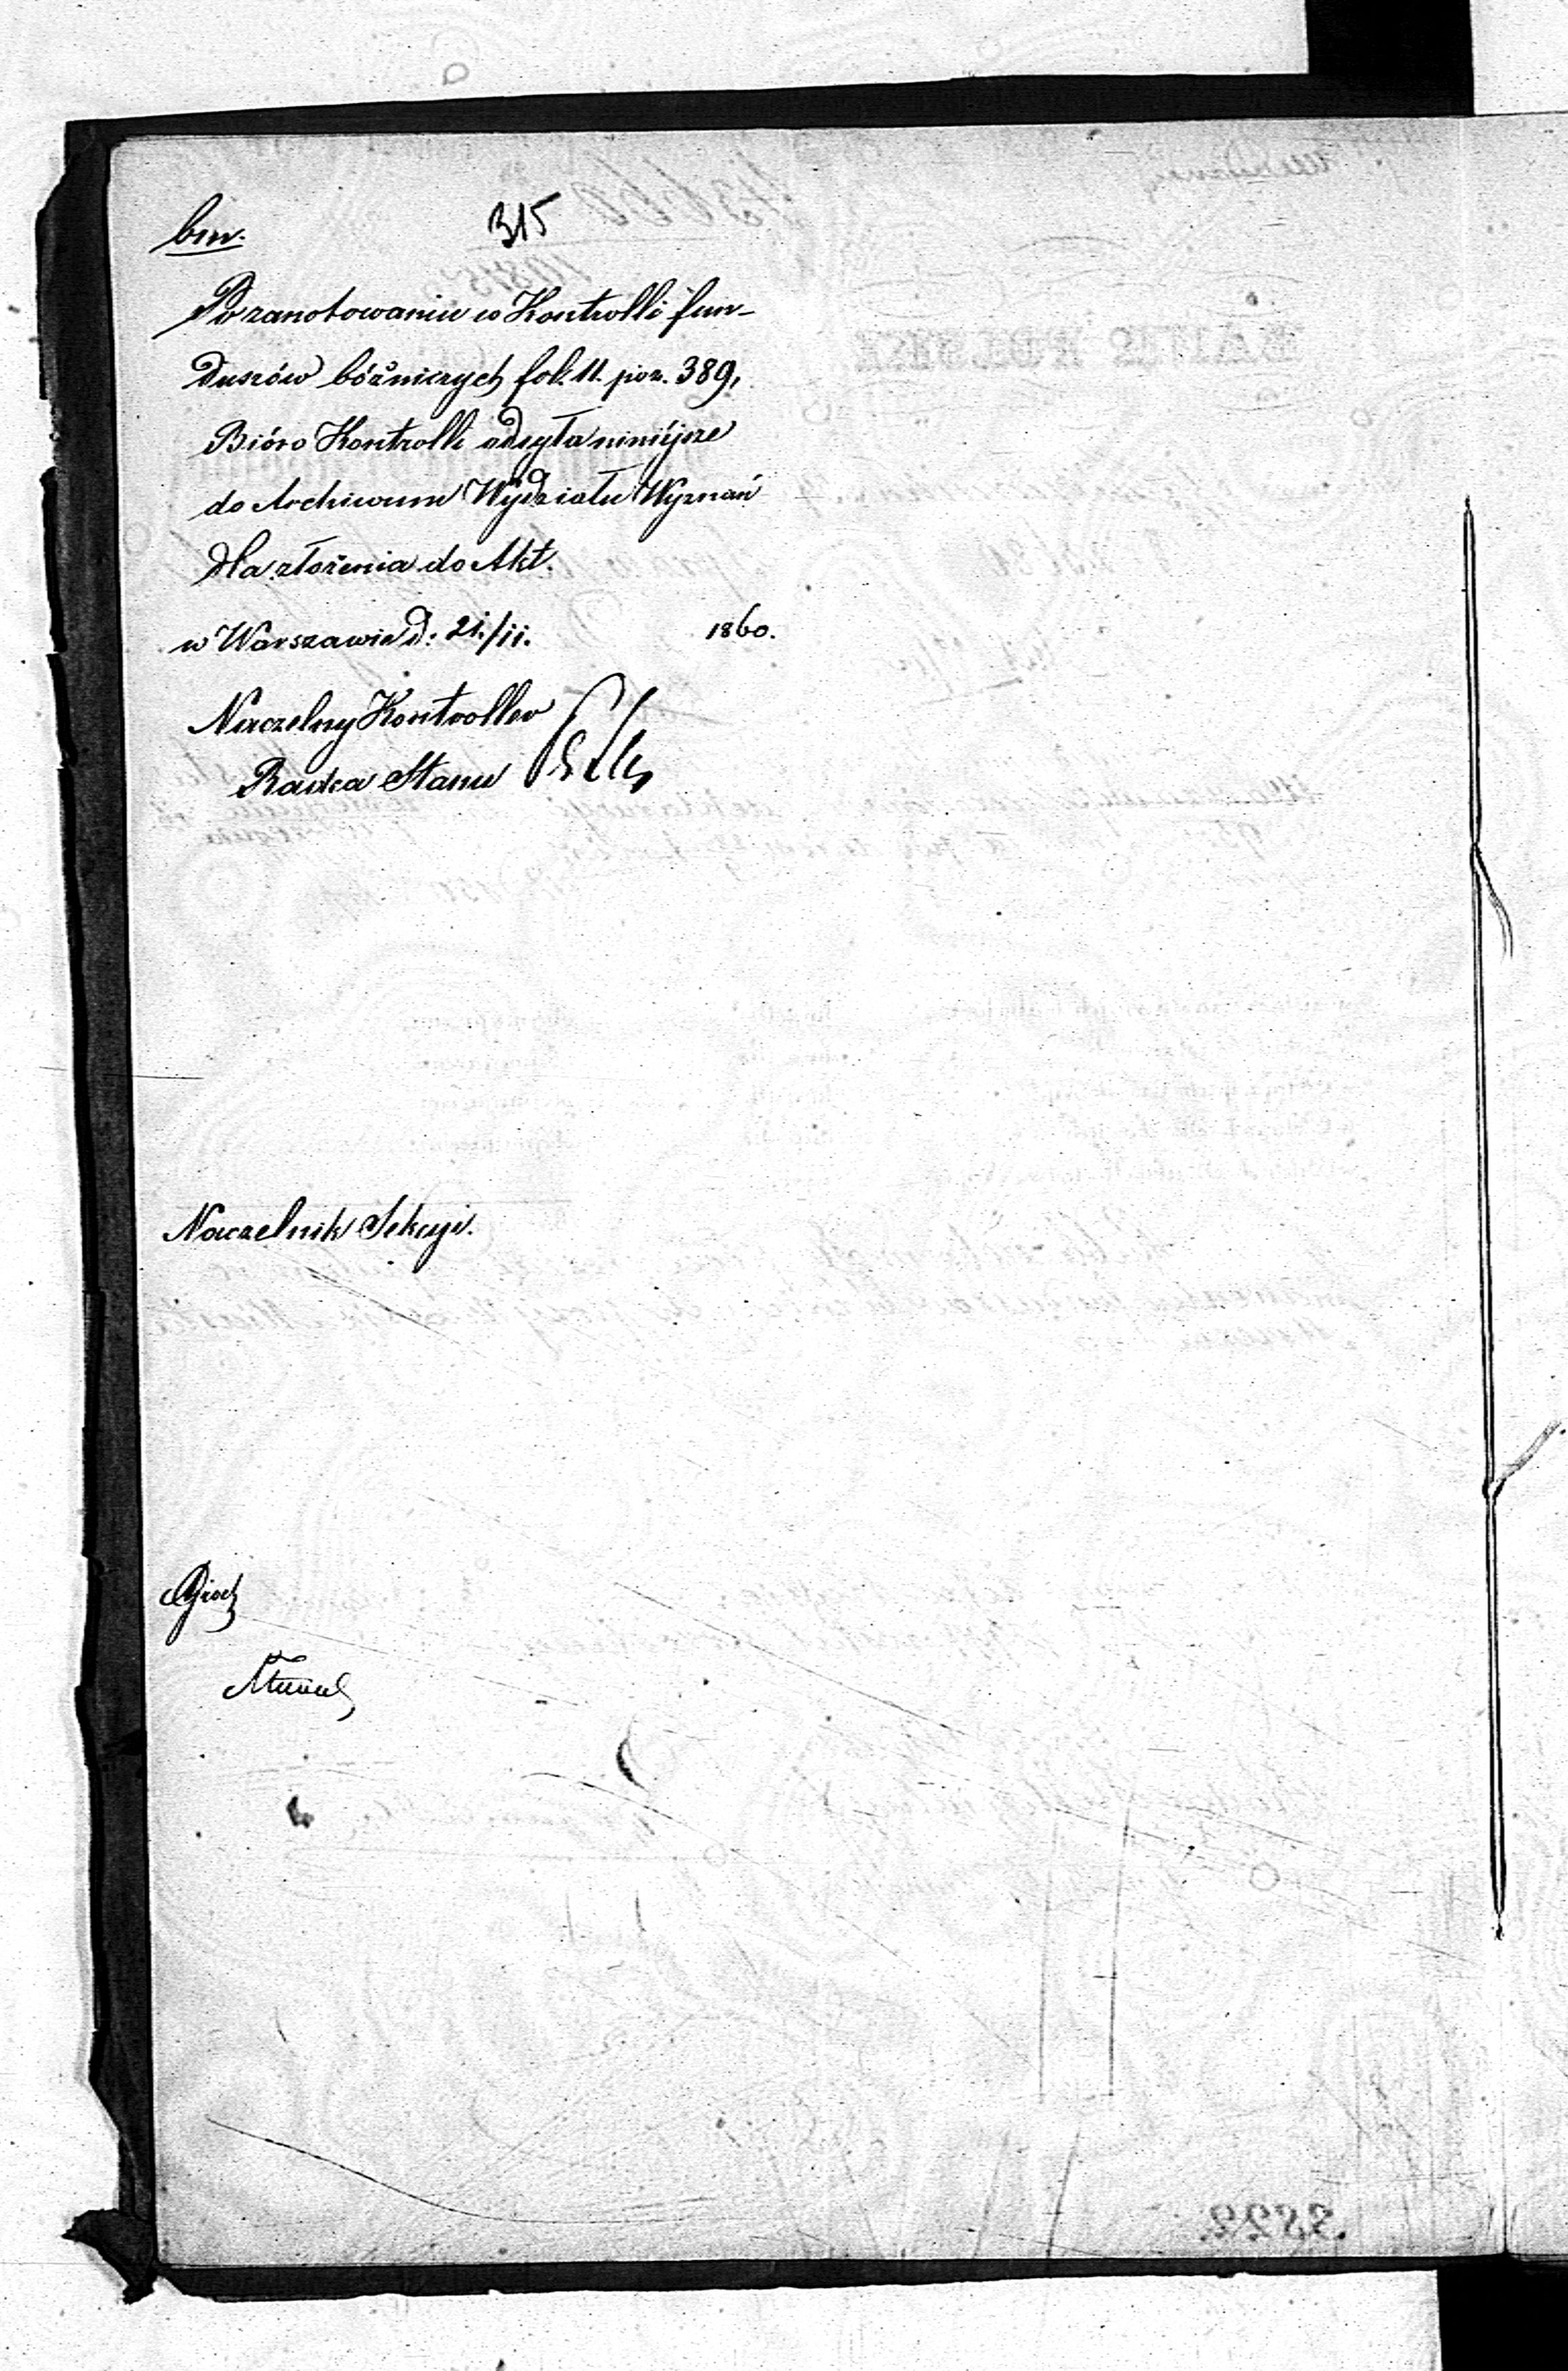 bnw. 315
Po zanotowaniu w Kontrolli fun-
duszów bóżniczych fol. 11. poz. 389,
Bióro Kontrolli odsyła niniéjsze
do Archiwum Wydziału Wyznań
dla złożenia do Akt.
w Warszawie d: 21./11. 1860.
Naczelny Kontroller
Radca Stanu
Naczelnik Sekcyi.